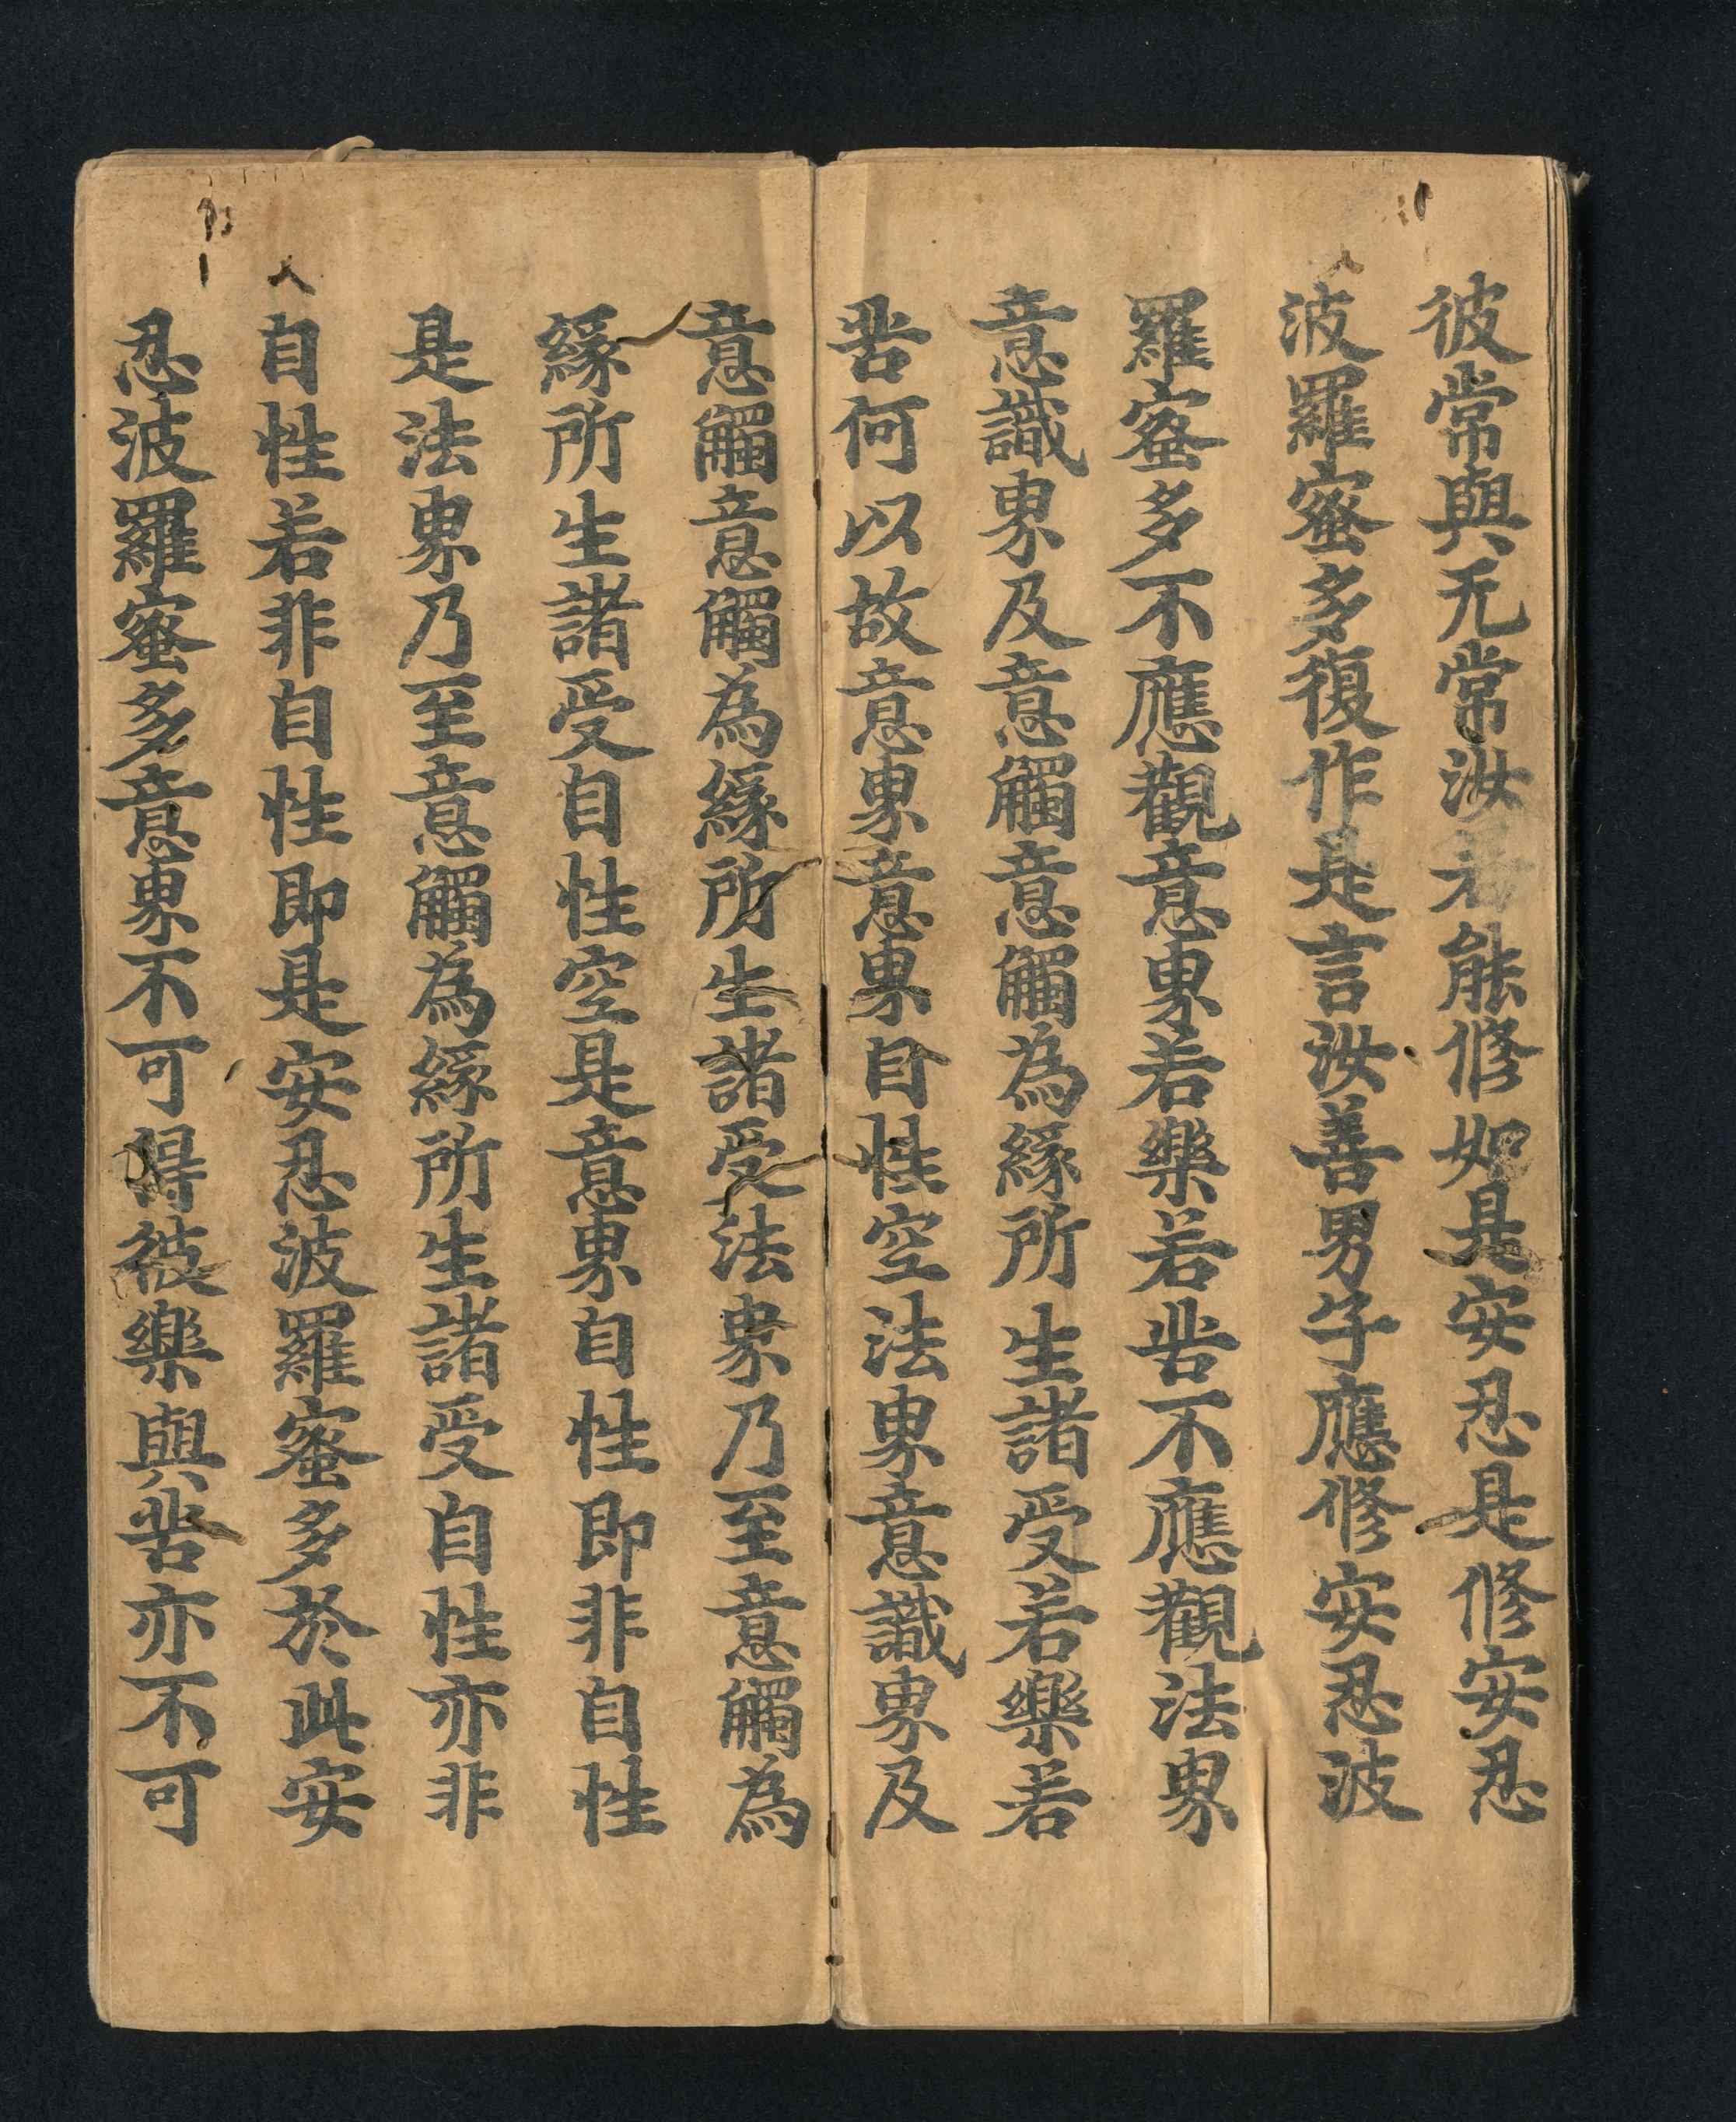 彼常與无常汝若能修如是安忍是修安忍
波羅蜜多復作是言汝善男子應修安忍波
羅蜜多不應觀意界若樂若苦不應觀法界
意識界及意觸意觸為緣所生諸受若樂若
苦何以故意界意界自性空法界意識界及
意觸意觸為緣所生諸受法界乃至意觸為
緣所生諸受自性空是意界自性即非自性
是法界乃至意觸為緣所生諸受自性亦非
自性若非自性即是安忍波羅蜜多於此安
忍波羅蜜多意界不可得彼樂與苦亦不可